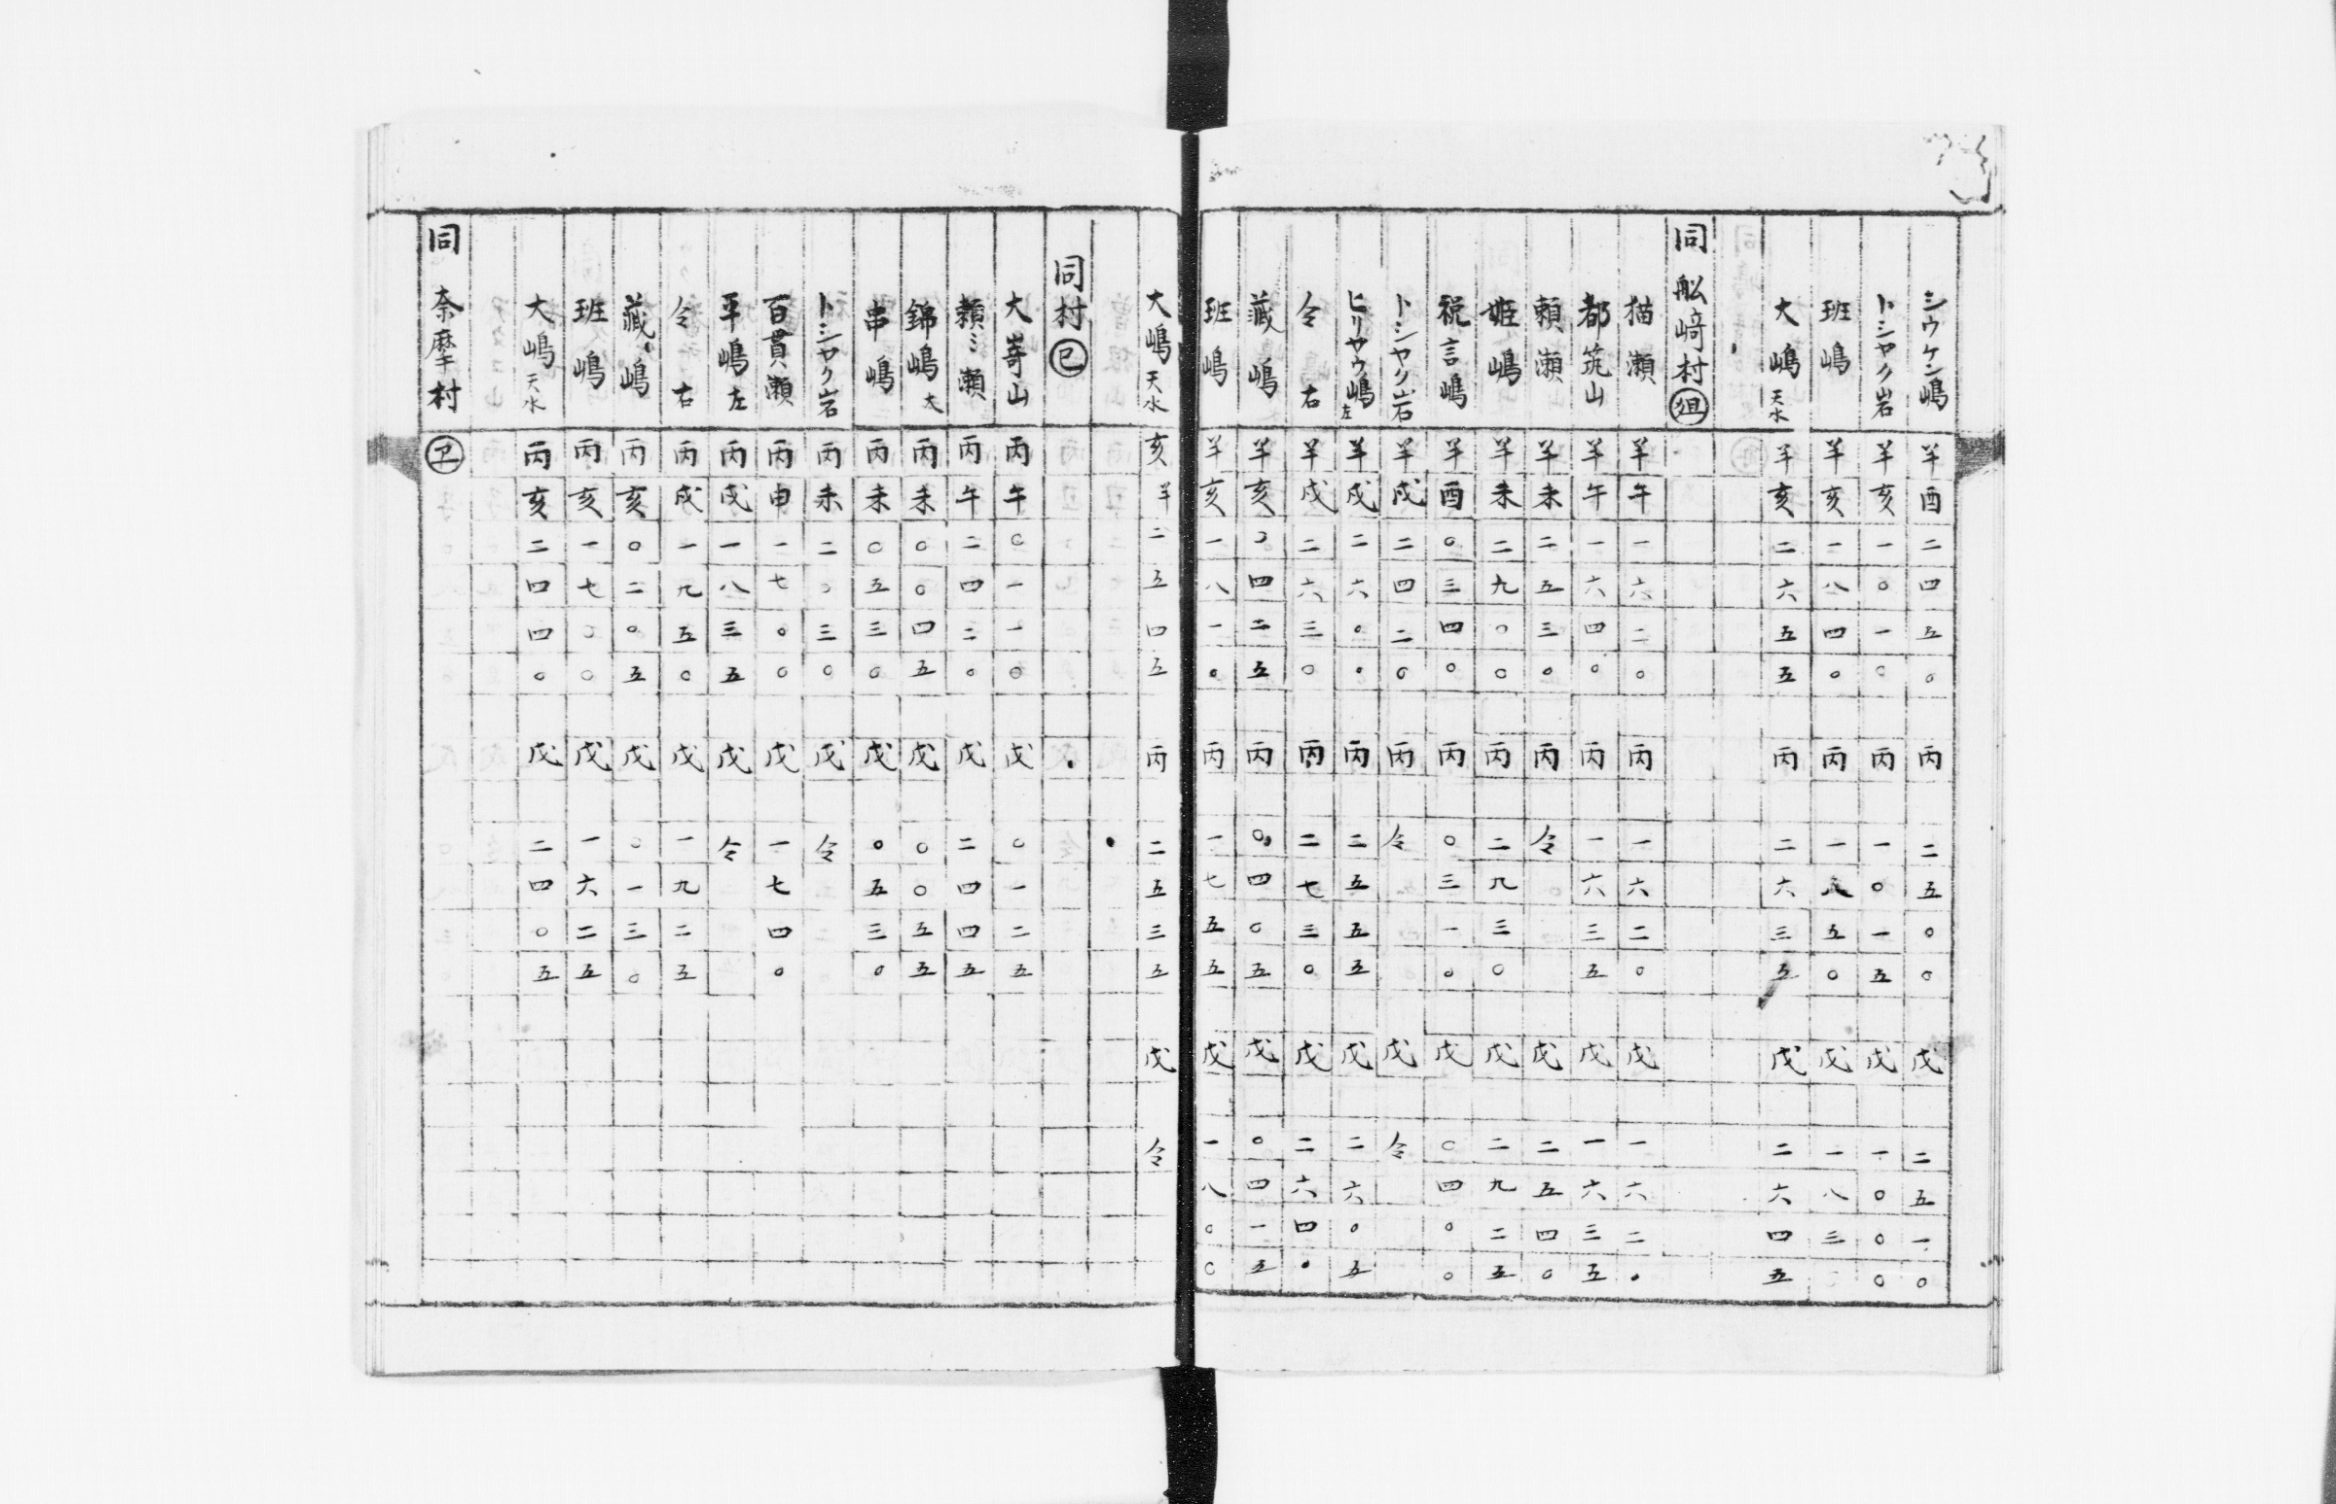 シウケン嶋 羊酉二四五〇 丙 二五〇〇 戊 二五一〇
トシヤク岩 羊亥一〇一〇 丙 一〇一五 戊 一〇〇〇
班嶋 羊亥一八四〇 丙 一八五〇 戊 一八三
大嶋天水 羊亥二六五五 丙 二六三五 戊 二六四五
同 舩﨑村
猫瀬 羊午一六二〇 丙 一六二〇 戊 一六二〇
都筑山 羊午一六四〇 丙 一六三五 戊 一六三五
頼瀬 羊未二五三〇 丙 仝 戊 二五四〇
姫嶋 羊未二九〇〇 丙 二九三〇 戊 二九二五
祝言嶋 羊酉〇三四〇 丙 〇三一〇 戊 〇四〇〇
トシヤク岩 羊戌二四二〇 丙 仝 戊 仝
ヒリヤウ嶋左 羊戌二六〇〇 丙 二五五五 戊 二六〇五
仝 右 羊戌二六三〇 丙 二七三〇 戊 二六四〇
藏嶋 羊亥〇四二五 丙 〇四〇五 戊 〇四一五
班嶋 羊亥一八一〇 丙 一七五五 戊 一八〇〇
大嶋天水 亥羊二五四五 丙 二五三五 戊 仝
同村 巳
大嵜山 丙午〇一一〇 戊 〇一二五
頼ミ瀬 丙午二四二〇 戊 二四四五
錦嶋大 丙未〇〇四五 戊 〇〇五五
串嶋 丙未〇五三〇 戊 〇五三〇
トシヤク岩 丙未二〇三〇 戊 仝
百貫瀬 丙申一七〇〇 戊 一七四〇
平嶋左 丙戌一八三五 戊 仝
仝 右 丙戌一九五〇 戊 一九二五
藏嶋 丙亥〇二〇五 戊 〇一三〇
班嶋 丙亥一七〇〇 戊 一六二五
大嶋天水 丙亥二四四〇 戊 二四〇五
同 奈摩村